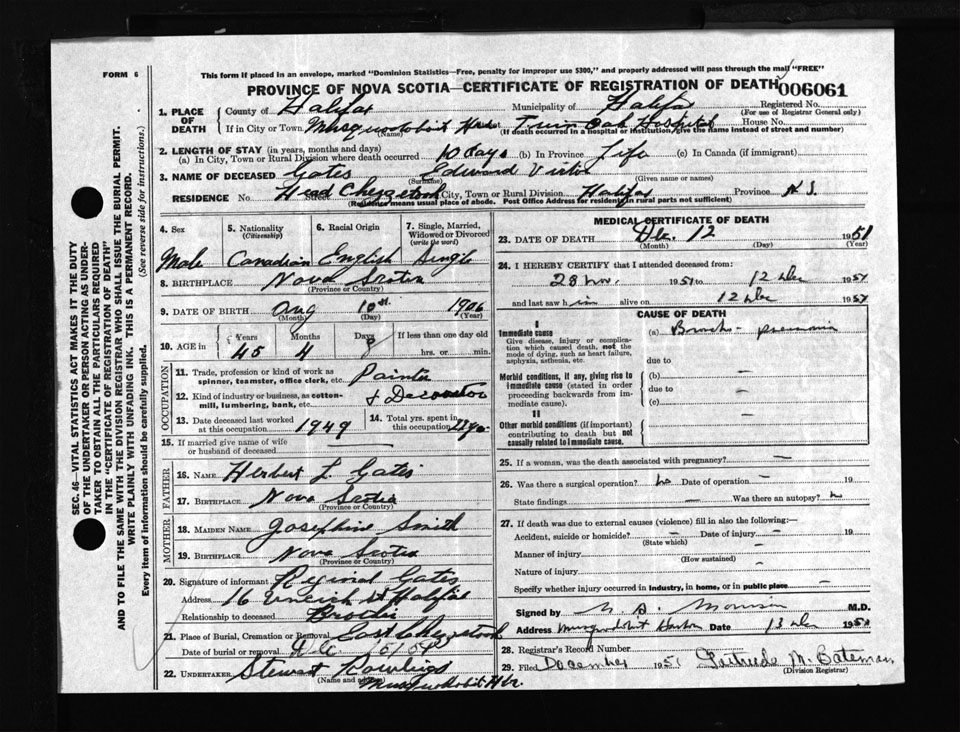 FORM 6
This form if placed in an envelope, marked "Dominion Statistics—Free, penalty for improper use $300," and properly addressed will pass through the mail "FREE"
PROVINCE OF NOVA SCOTIA—CERTIFICATE OF REGISTRATION OF DEATH
006061
1. PLACE OF DEATH
County of Halifax Municipality of Halifax Registered No.
(For use of Registrar General only)
If in City or Town Musquodoboit Harbor Twin Oak Hospital House No.
(Name) (If death occurred in a hospital or institution, give the name instead of street and number)
2. LENGTH OF STAY (in years, months and days)
(a) In City, Town or Rural Division where death occurred 10 days (b) In Province Life (c) In Canada (if immigrant)
3. NAME OF DECEASED Gates Edward Victor
(Surname) (Given name or names)
RESIDENCE No. Head Chezzetcook Street City, Town or Rural Division Halifax Province N.S.
(Residence means usual place of abode. Post Office Address for residents in rural parts not sufficient)
4. Sex
Male
5. Nationality
(Citizenship)
Canadian
6. Racial Origin
English
7. Single, Married, Widowed or Divorced
(write the word)
Single
8. BIRTHPLACE Nova Scotia
(Province or Country)
9. DATE OF BIRTH Aug 10th 1906
(Month) (Day) (Year)
10. AGE in Years Months Days If less than one day old
45 4 hrs. or min.
OCCUPATION
11. Trade, profession or kind of work as spinner, teamster, office clerk, etc. Painter
12. Kind of industry or business, as cotton-mill, lumbering, bank, etc. & Decorator
13. Date deceased last worked at this occupation 1949
14. Total yrs. spent in this occupation
15. If married give name of wife or husband of deceased
FATHER
16. NAME Herbert L. Gates
17. BIRTHPLACE Nova Scotia
(Province or Country)
MOTHER
18. MAIDEN NAME Josephine Smith
19. BIRTHPLACE Nova Scotia
(Province or Country)
20. Signature of informant Reginal Gates
Address 16 St Halifax
Relationship to deceased Brother
21. Place of Burial, Cremation or Removal East Chezzetcook
Date of burial or removal Dec
22. UNDERTAKER Stewart Rowlings
(Name and address)
Musquodoboit Hbr.
MEDICAL CERTIFICATE OF DEATH
23. DATE OF DEATH Dec. 12 1951
(Month) (Day) (Year)
24. I HEREBY CERTIFY that I attended deceased from:
28 Nov. 1951 to 12 Dec 1951
and last saw him alive on 12 Dec 1951
CAUSE OF DEATH
I
Immediate cause
Give disease, injury or complication which caused death, not the mode of dying, such as heart failure, asphyxia, asthenia, etc.
(a) Broncho-pneumonia
due to
Morbid conditions, if any, giving rise to immediate cause (stated in order proceeding backwards from immediate cause).
(b) —
due to —
(c)
II
Other morbid conditions (if important) contributing to death but not causally related to immediate cause.
—
25. If a woman, was the death associated with pregnancy? —
26. Was there a surgical operation? no Date of operation — 19
State findings — Was there an autopsy? n
27. If death was due to external causes (violence) fill in also the following:—
Accident, suicide or homicide? — Date of injury — 19
(State which)
Manner of injury —
(How sustained)
Nature of injury —
Specify whether injury occurred in industry, in home, or in public place —
Signed by Morrison M.D.
Address Musquodoboit Harbour Date 13 Dec 1951
28. Registrar's Record Number
29. Filed December 1951 Gertrude M. Bateman
(Division Registrar)
SEC. 46—VITAL STATISTICS ACT MAKES IT THE DUTY
OF THE UNDERTAKER OR PERSON ACTING AS UNDER-
TAKER TO OBTAIN ALL THE PARTICULARS REQUIRED
IN THE "CERTIFICATE OF REGISTRATION OF DEATH"
AND TO FILE THE SAME WITH THE DIVISION REGISTRAR WHO SHALL ISSUE THE BURIAL PERMIT.
WRITE PLAINLY WITH UNFADING INK. THIS IS A PERMANENT RECORD.
Every item of information should be carefully supplied. (See reverse side for instructions.)